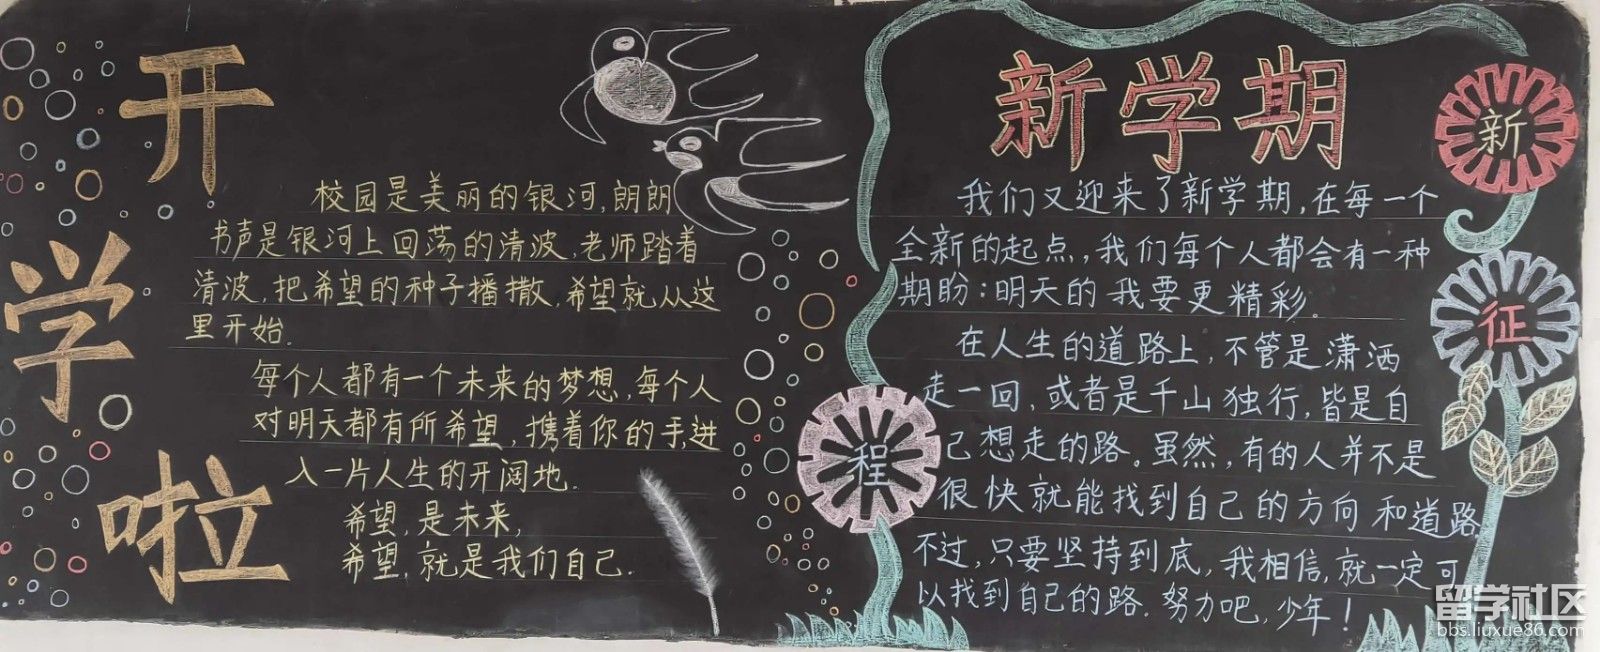 开
学
啦
校园是美丽的银河,朗朗
书声是银河上回荡的清波,老师踏着
清波,把希望的种子播撒,希望就从这
里开始.
每个人都有一个未来的梦想,每个人
对明天都有所希望,携着你的手,进
入一片人生的开阔地.
希望,是未来,
希望,就是我们自己.
新学期
我们又迎来了新学期,在每一个
全新的起点,我们每个人都会有一种
期盼:明天的我要更精彩.
在人生的道路上,不管是潇洒
走一回,或者是千山独行,皆是自
己想走的路。虽然,有的人并不是
很快就能找到自己的方向和道路
不过,只要坚持到底,我相信,就一定可
以找到自己的路.努力吧,少年!
新
征
程
留学社区
bbs.liuxue86.com